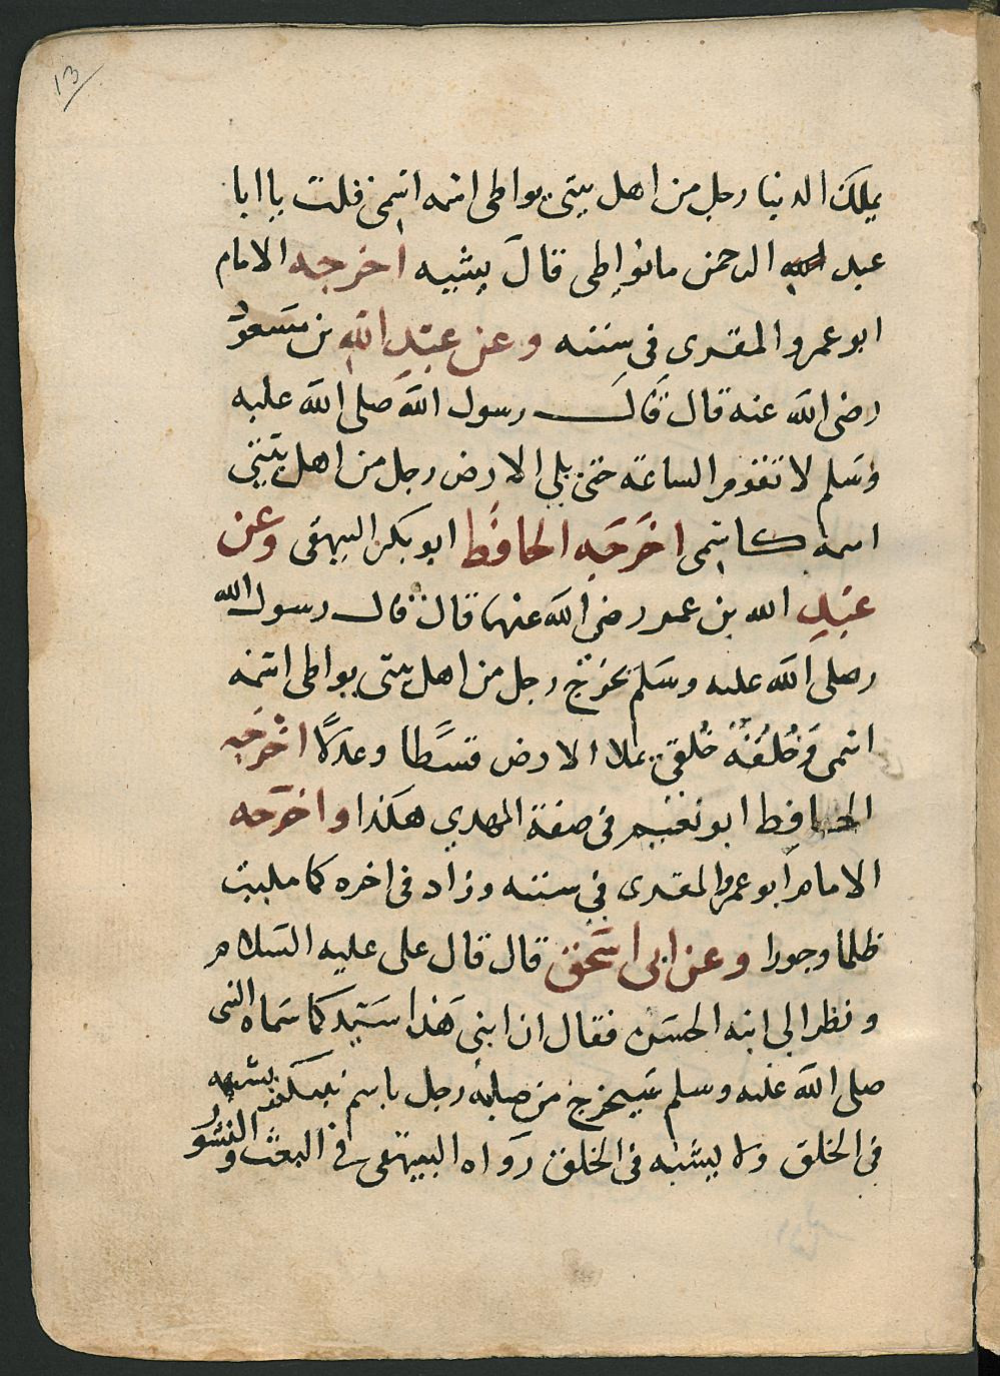 13
يملك الدنيا رجل من اهل بيتي يواطى اسمه اسمى قلت يا ابا
عبد الرحمن ما يواطى قال يشبه اخرجه الامام
ابو عمرو المقرى فى سننه وعن عبد الله بن مسعود
رضى الله عنه قال قال رسول الله صلى الله عليه
وسلم لا تقوم الساعة حتى يلي الارض رجل من اهل بيتي
اسمه كاسمى اخرجه الحافظ ابو بكر البيهقى وعن
عبد الله بن عمر رضي الله عنهما قال قال رسول الله
صلى الله عليه وسلم يخرج رجل من اهل بيتى يواطى اسمه
اسمى وخلقه خلقي يملا الارض قسطا وعدلا اخرجه
الحافظ ابو نعيم فى صفة المهدي هكذا واخرجه
الامام ابو عمرو المقرى في سننه وزاد فى اخره كما ملئت
ظلما وجورا وعن ابى اسحق قال قال على عليه السلام
ونظر الى ابنه الحسن فقال ان ابنى هذا سيد كما سماه النبى
صلى الله عليه وسلم سيخرج من صلبه رجل باسم نبيكم يشبهه
فى الخلق ولا يشبه فى الخلق رواه البيهقى في البعث والنشور